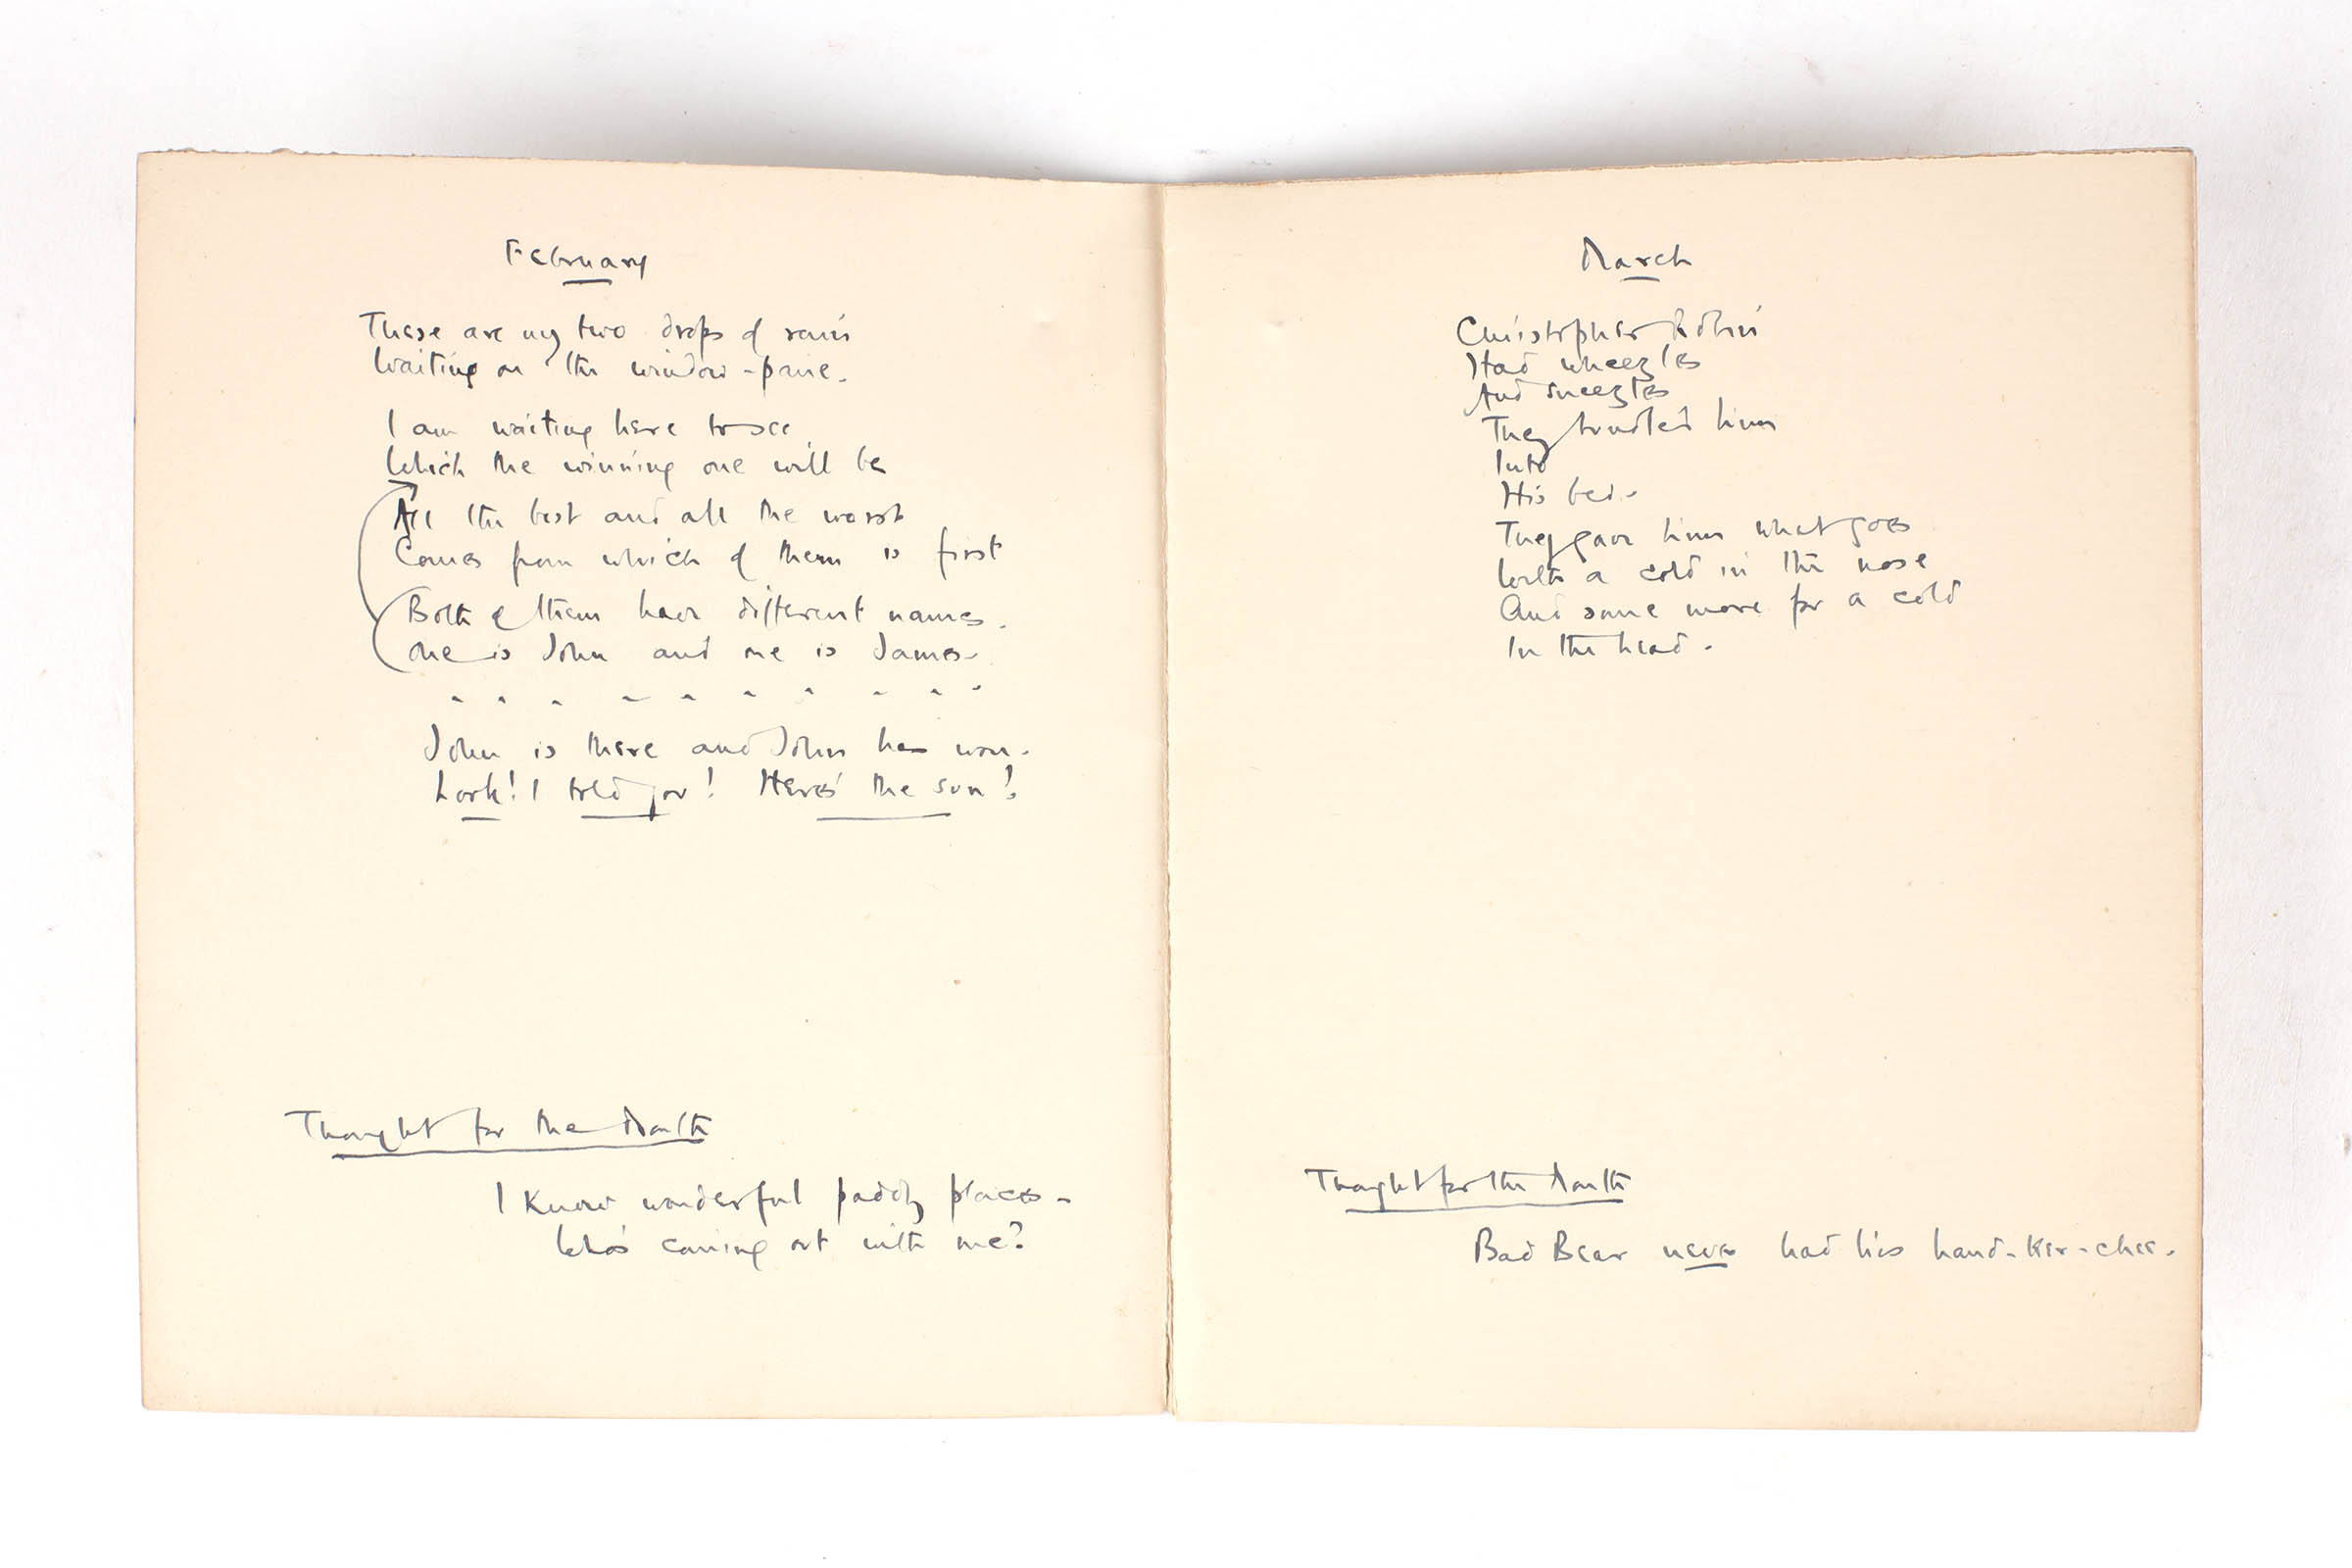 February
These are my two drops of rain
Waiting on the window-pane.
I am waiting here to see
Which the winning one will be
All the best and all the worst
Comes from which of them is first
Both of them have different names.
One is John and one is James.
- - - - - - - - - -
John is there and John has won.
Look! I told you! Here's the sun!
Thought for the Month
I know wonderful paddly places -
Who's coming out with me?
March
Christopher Robin
Had wheezles
And sneezles
They bundled him
Into
His bed.
They gave him what goes
With a cold in the nose
And some more for a cold
In the head.
Thought for the Month
Bad Bear never had his hand-ker-chee.